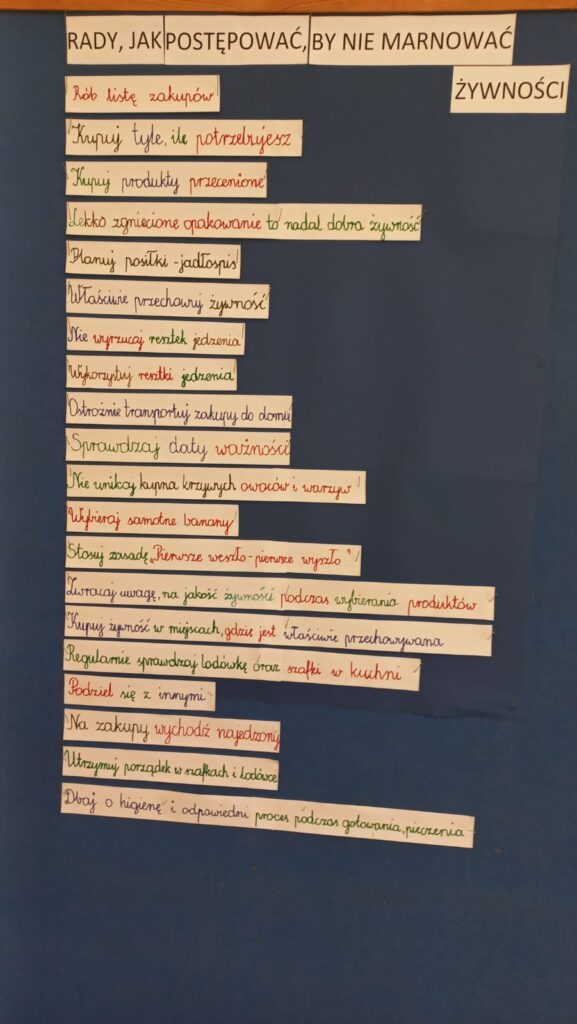 RADY, JAK POSTĘPOWAĆ, BY NIE MARNOWAĆ
ŻYWNOŚCI
Rób listę zakupów
Kupuj tyle, ile potrzebujesz
Kupuj produkty przecenione
Lekko zgniecione opakowanie to nadal dobra żywność
Planuj posiłki - jadłospis
Właściwie przechowuj żywność
Nie wyrzucaj resztek jedzenia
Wykorzystuj resztki jedzenia
Ostrożnie transportuj zakupy do domu
Sprawdzaj daty ważności
Nie unikaj kupna krzywych owoców i warzyw
Wybieraj samotne banany
Stosuj zasadę „Pierwsze weszło - pierwsze wyszło"
Zwracaj uwagę, na jakość żywności podczas wybierania produktów
Kupuj żywność w miejscach, gdzie jest właściwie przechowywana
Regularnie sprawdzaj lodówkę oraz szafki w kuchni
Podziel się z innymi
Na zakupy wychodź najedzony
Utrzymuj porządek w szafkach i lodówce
Dbaj o higienę i odpowiedni proces podczas gotowania, pieczenia